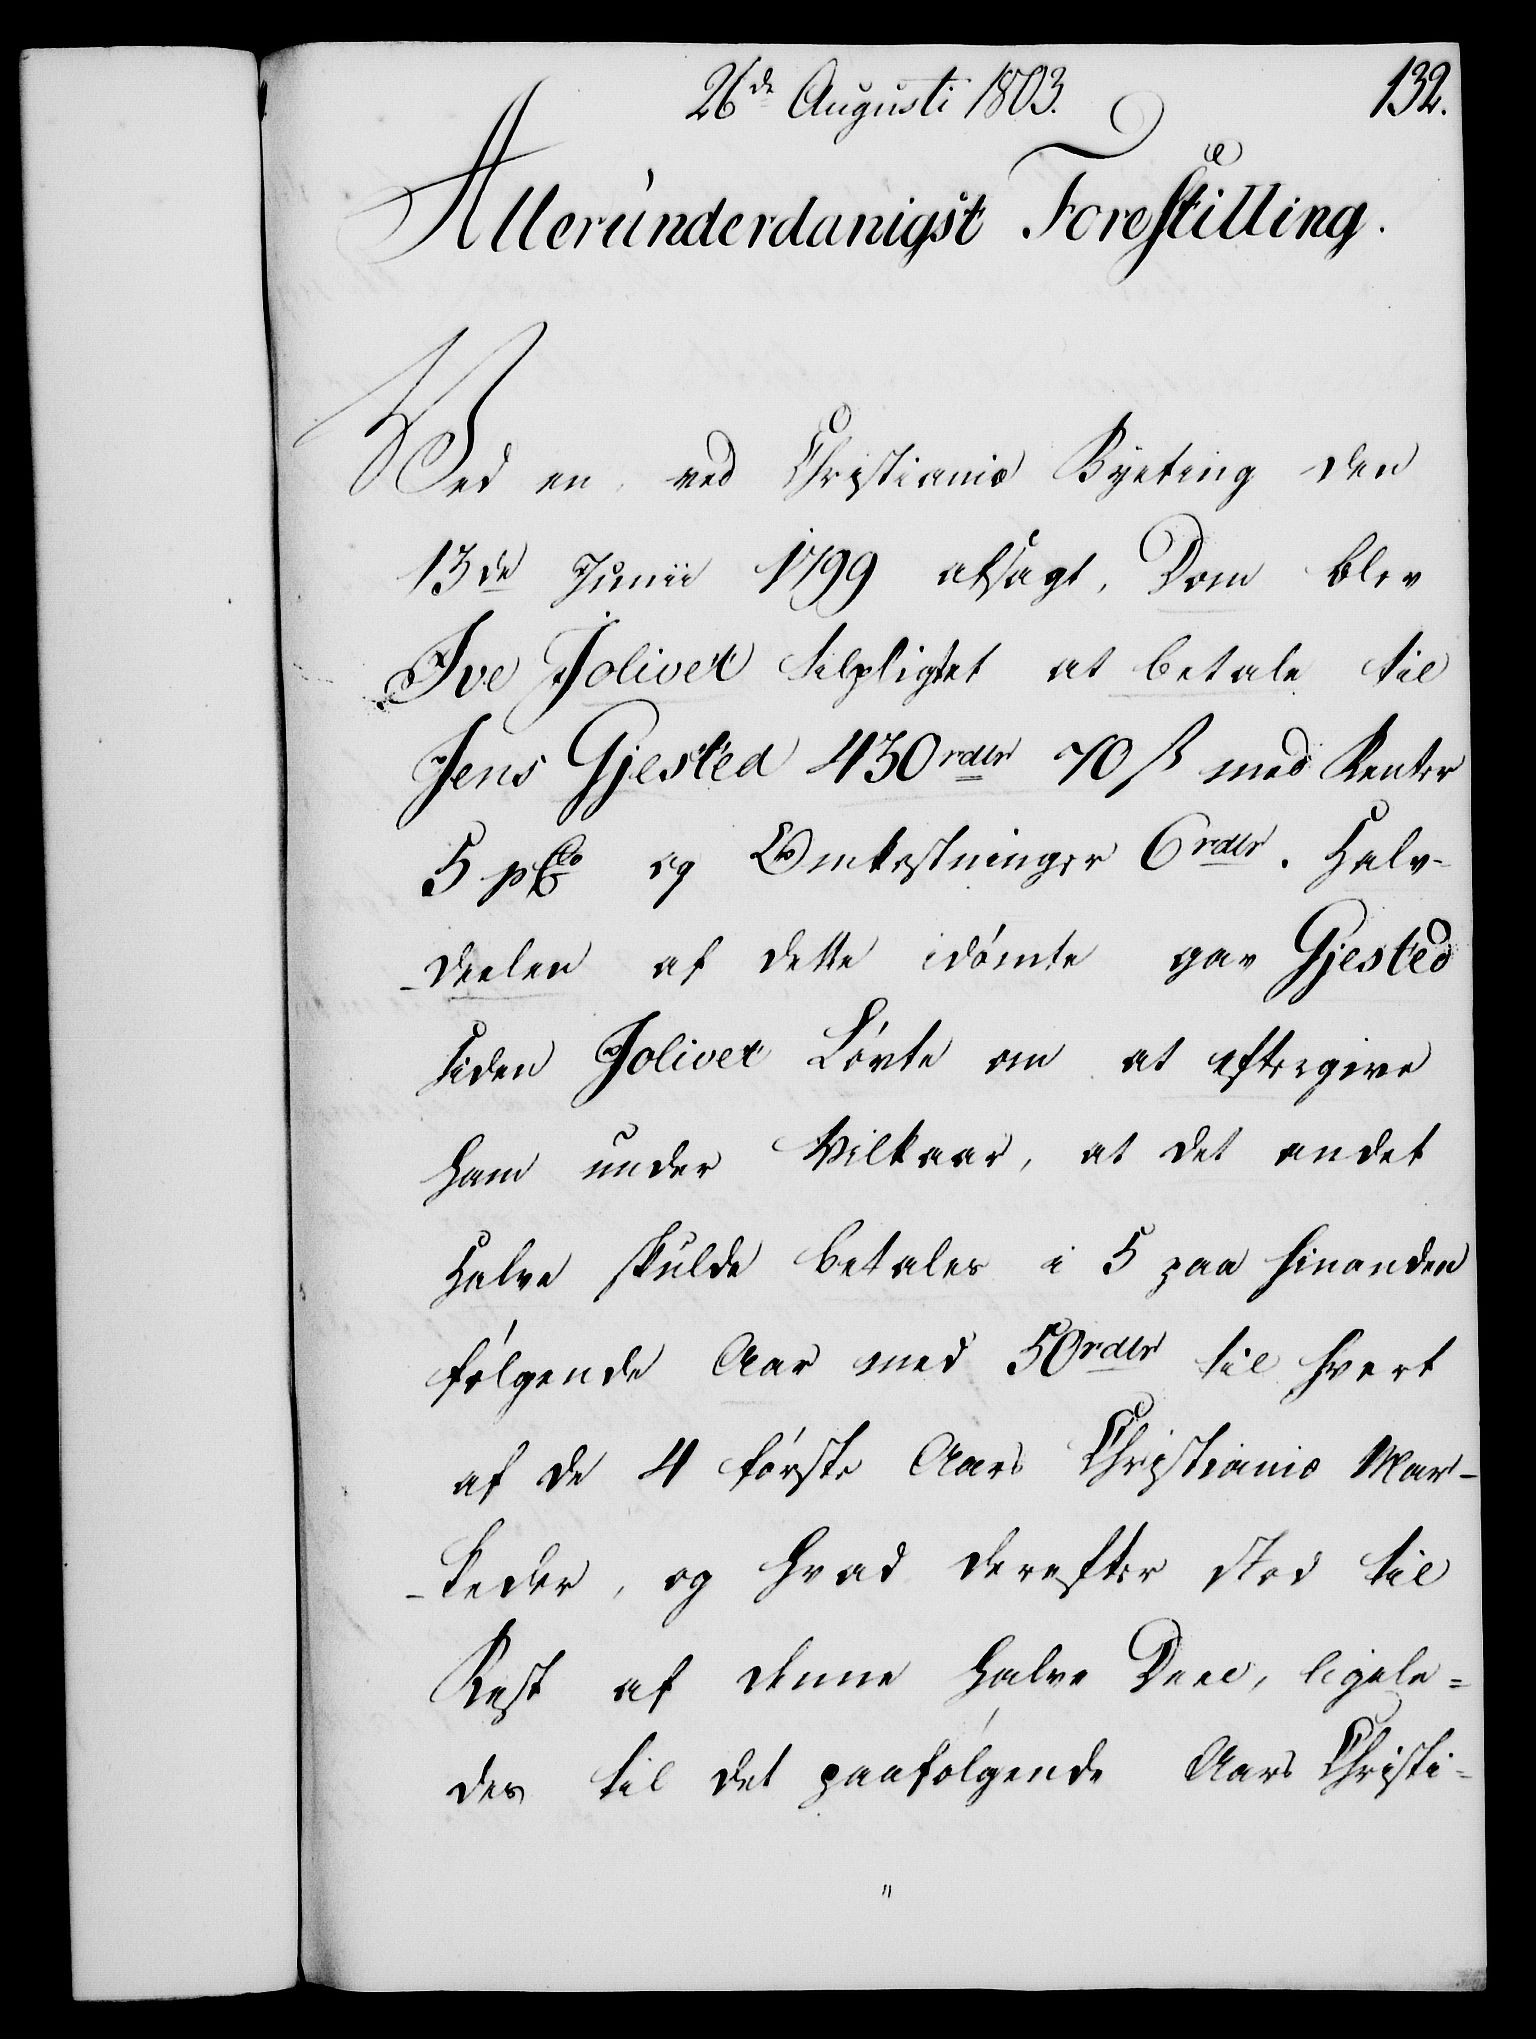 26de Augusti 1803.
132.
Allerunderdanigst Forestilling.
Ved en, ved Christiania Byeting den
13de Junii 1799 afsagt, Dom blev
Ive Jolivet tilpligtet at betale til
Jens Gjested 430 rdlr 70 ß med Renter
5 pCto og Omkostninger 6 rdlr. Halv-
-deelen af dette idömte gav Gjested
siden Jolivet Lövte om at eftergive
ham under Vilkaar, at det andet
halve skulde betales i 5 paa hinanden
fölgende Aar med 50 rdlr til hvert
af de 4 förste Aars Christiania Mar-
-keder, og hvad derefter stod til
Rest af denne halve Deel, ligele=
des til det paafölgende Aars Christi=
"